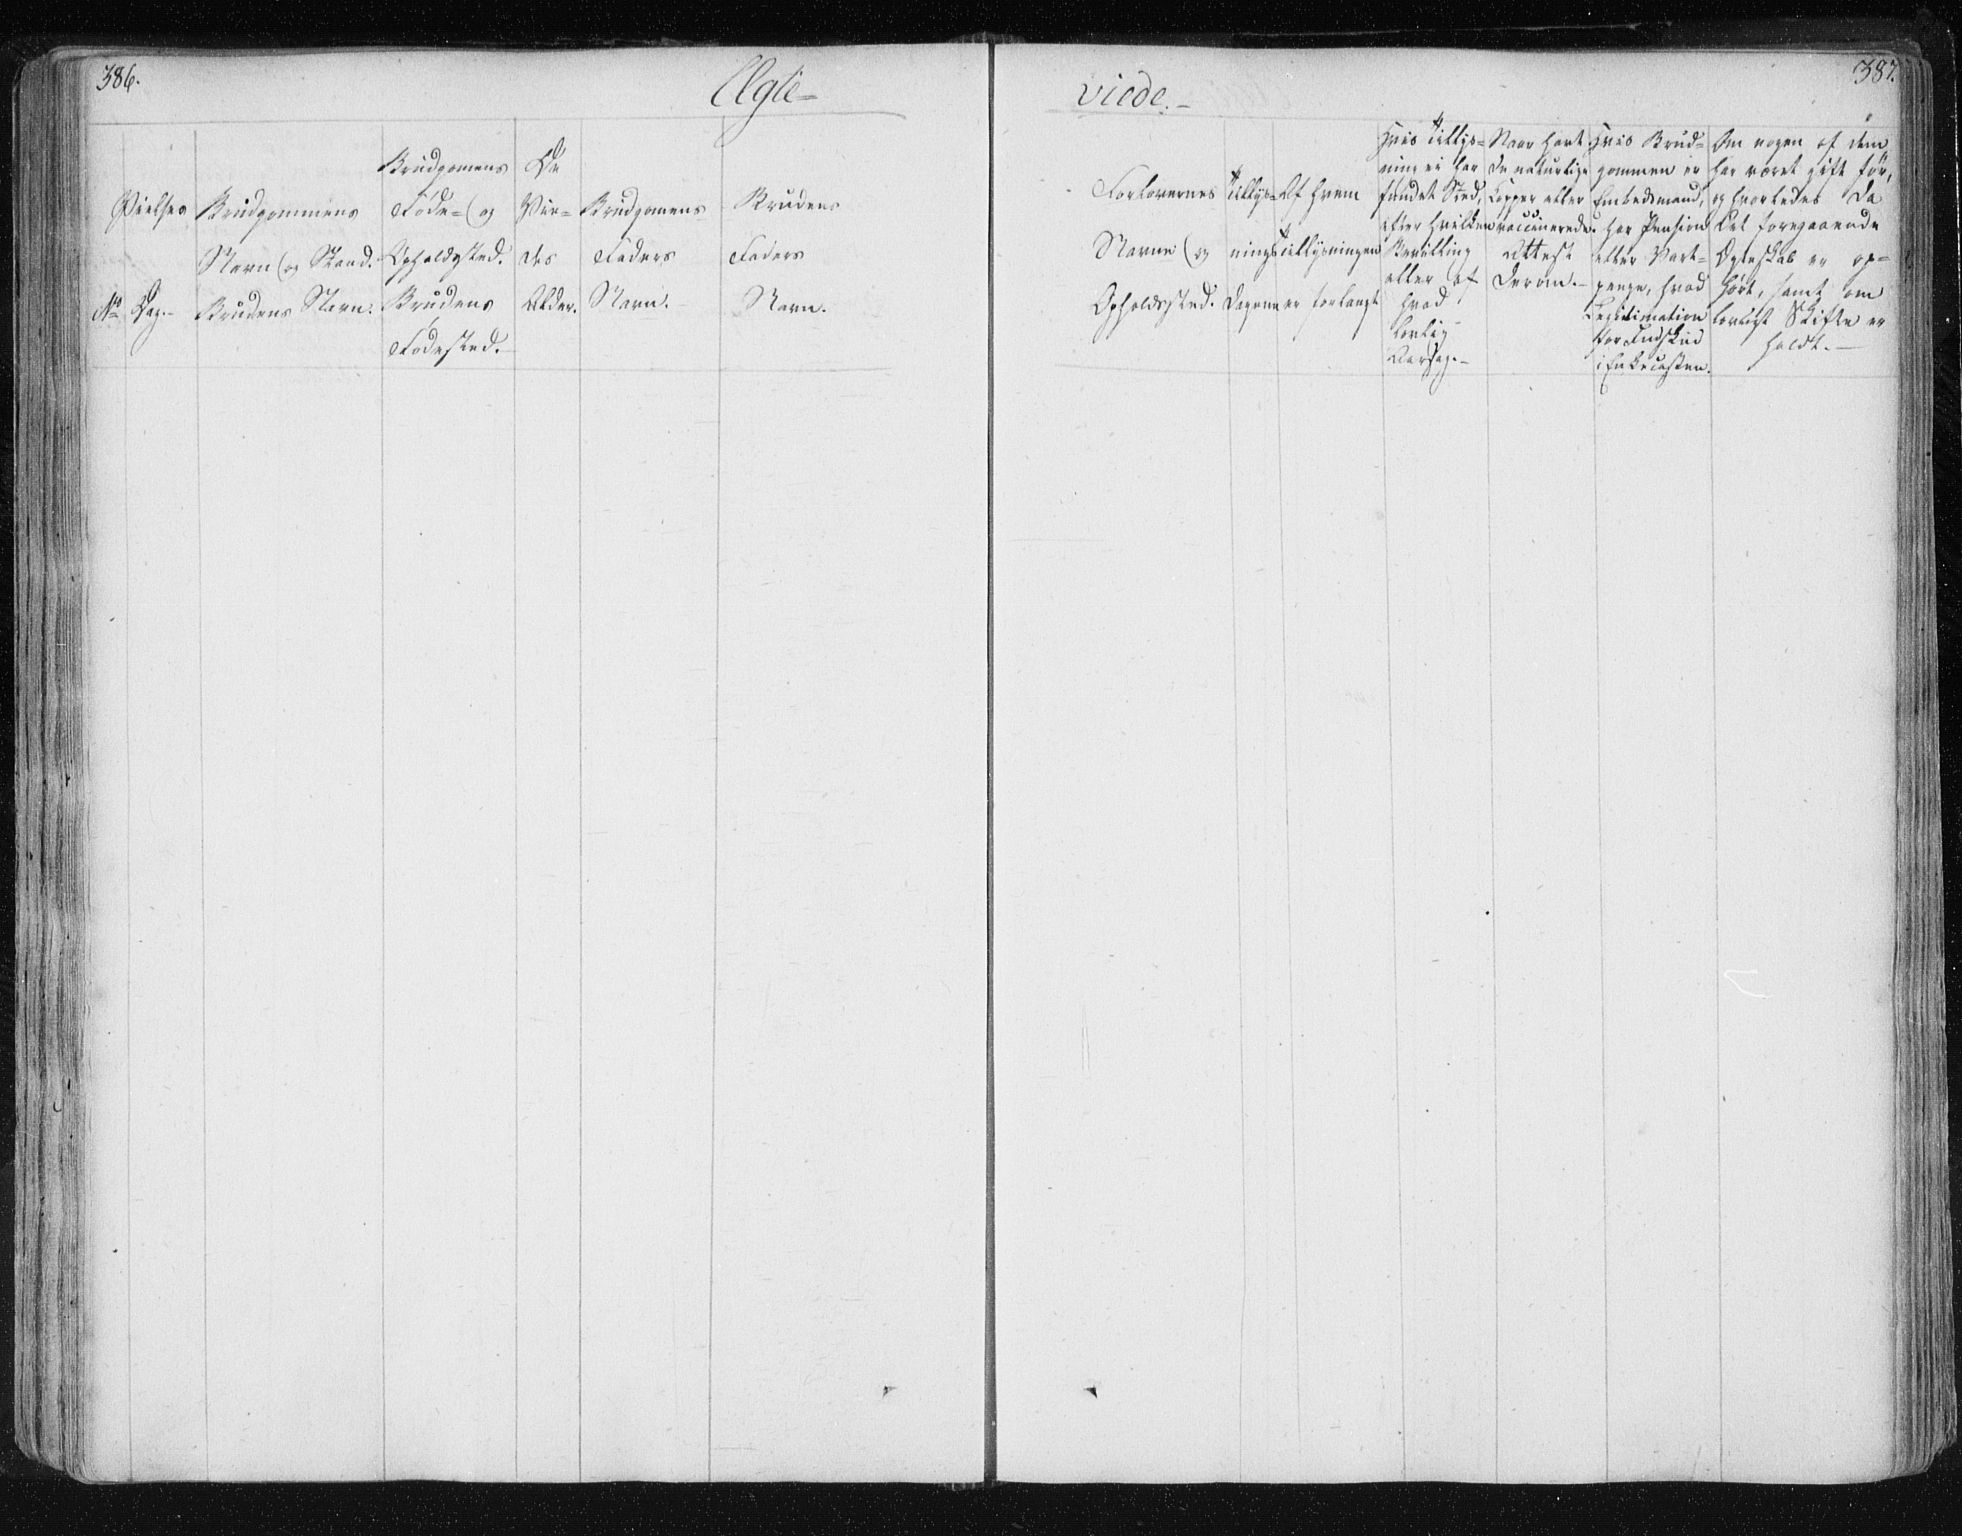 386.
Ægte=
Vielses
No Dag.-
Brudgommens
Navn (og Stand.
Brudens Navn.
Brudgomens
Føde= (og
Opholdssted.
Brudens
Fødested.-
De
Vie=
des
Alder.
Brudgomens
Faders
Navn.
Brudens
Faders
Navn.
387.
viede.-
Forlovernes
Navne (og
Opholdssted.
Tillys=
nings
Dagene
Af Hvem
Tillysningen
er forlangt
Hvis Tillys=
ning ei har
fundet Sted,
efter hvilken
Bevilling
eller af
hvad
lovlig
Aarsag.-
Naar havt
de naturlige
Kopper eller
vaccinerede.
Attest
derom.-
Hvis Brud=
gommen er
Embedsmand,
har Pension
eller Vart=
penge, hvad
Legitimation
for Indskud
i Enkecassen.
Om nogen af dem
har været gift før,
og hvorledes da
det foregaaende
Ægteskab er op=
hørt, samt om
lovligt Skifte er
holdt.-